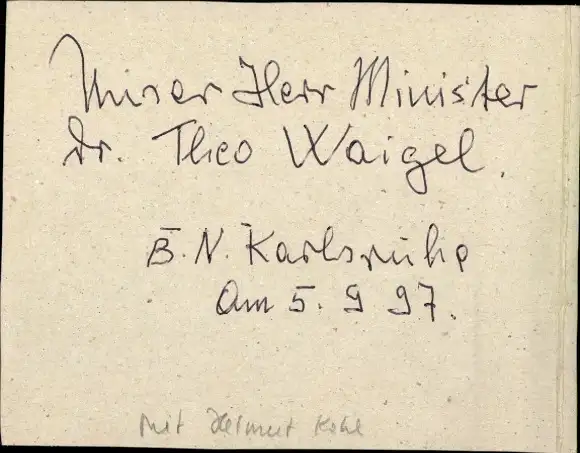 Unser Herr Minister
Dr. Theo Waigel.
B. N. Karlsruhe
Am 5. 9 97.
mit Helmut Kohl